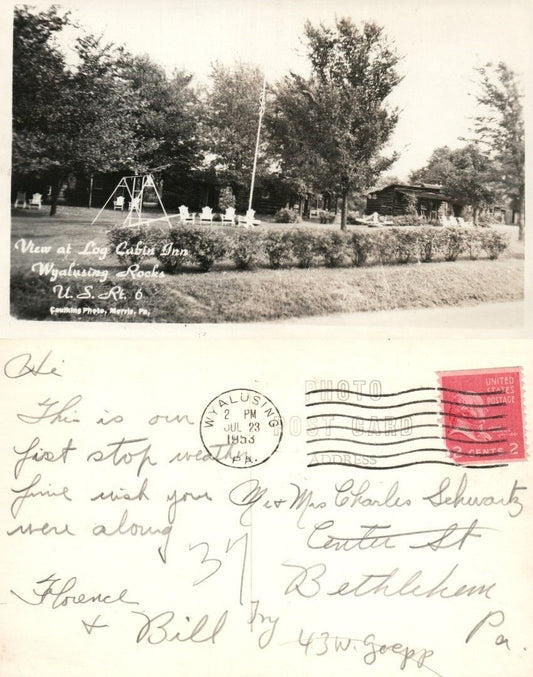 View at Log Cabin Inn
Wyalusing Rocks
U.S. Rt. 6
Caulking Photo, Morris, Pa.
Hi
This is our
first stop weather
fine wish you
were along
Florence
+ Bill
37
WYALUSING
2 PM
JUL 23
1953
PA.
PHOTO
POST CARD
ADDRESS
UNITED
STATES
POSTAGE
2 CENTS 2
Mr & Mrs Charles Schwartz
Center St
Bethlehem
Pa.
Try 43 W. Goepp